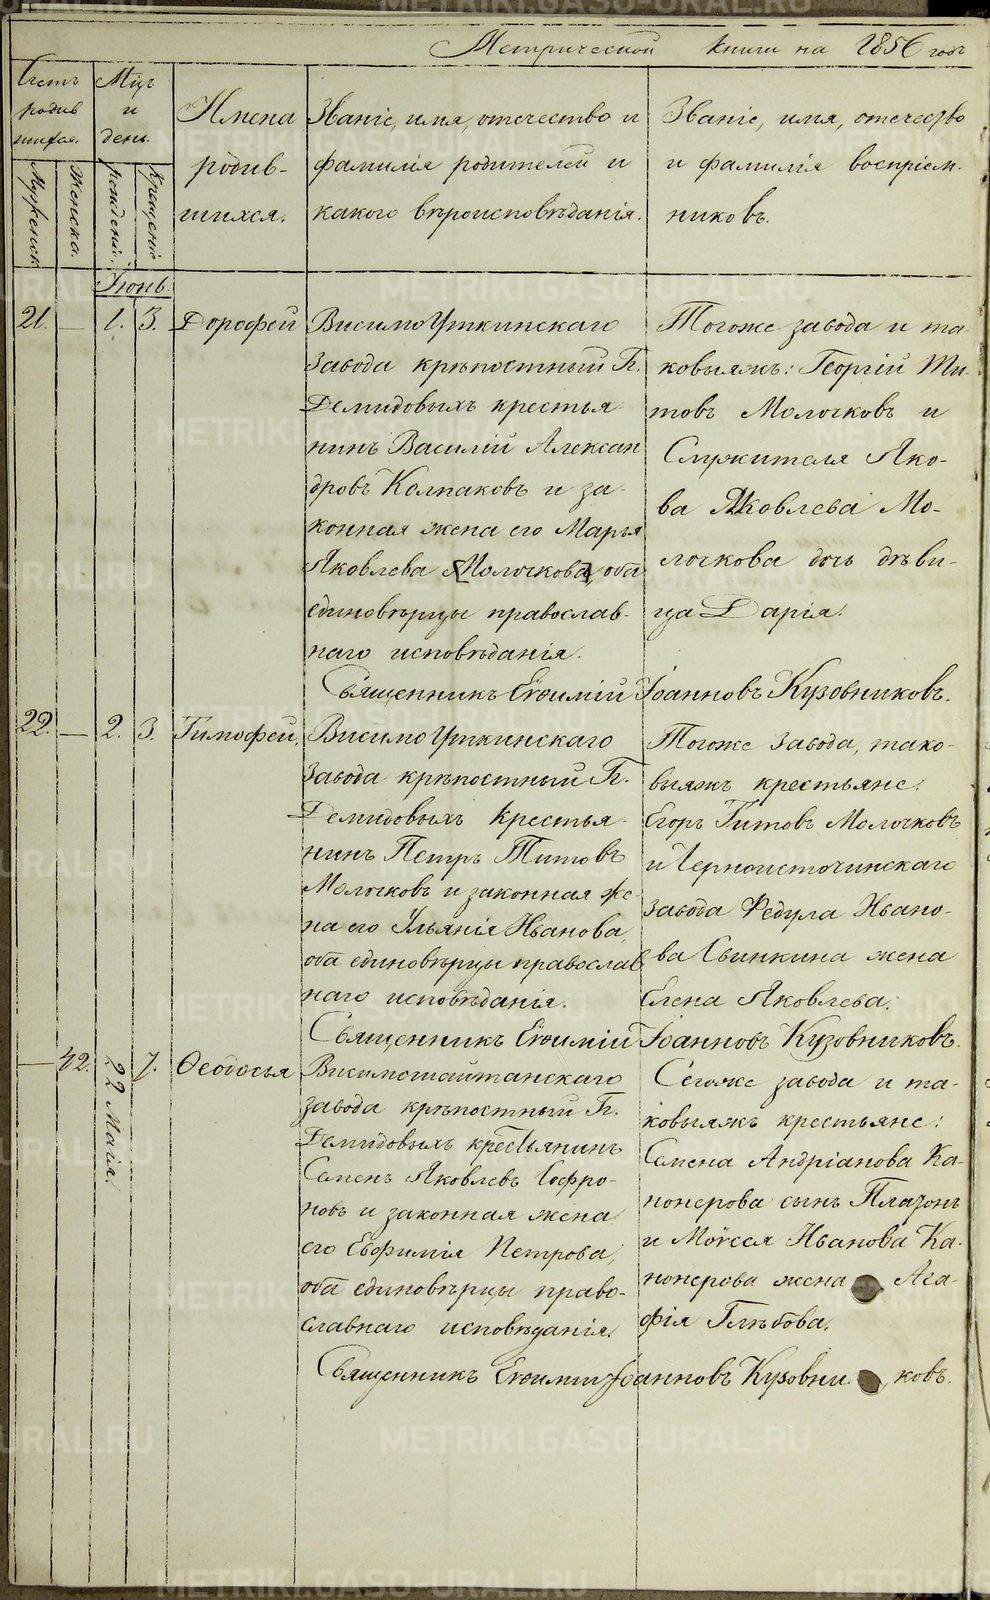 Метрической книги на 1856 годъ
Счетъ родив шихся.
Мцъ и день.
Имена родив- шихся.
Званіе, имя, отечество и
фамилія родителей и
какого вѣроисповѣданія.
Званіе, имя, отечество
и фамилія воспріем-
никовъ.
Мужеска
Женска.
рожденія.
Крещенія
Іюнь.
21. — 1. 3. Дорофей
ВисимоУткинскаго
завода крѣпостный Гг.
Демидовыхъ крестья
нинъ Василій Алексан
дровъ Колпаковъ и за-
конная жена его Марья
Яковлева Молочкова, оба
единовѣрцы православ-
наго исповѣданія.
Тогоже завода и та-
ковыяжъ: Георгій Ти-
товъ Молочковъ и
Служителя Яко-
ва Яковлева Мо-
лочкова дочь дѣви-
ца Дарія.
Священникъ Евѳимій Іоанновъ Кузовниковъ.
22. — 2. 3. Тимофей.
ВисимоУткинскаго
завода крѣпостный Гг.
Демидовыхъ Крестья-
нинъ Петръ Титовъ
Молочковъ и законная же
на его Ульянія Иванова,
оба единовѣрцы православ
наго исповѣданія.
Тогоже завода, тако-
выяжъ крестьяне:
Егоръ Титовъ Молочковъ
и Черноисточинскаго
завода Ѳедула Ивано-
ва Свинкина жена
Елена Яковлева.
Священникъ Евѳимій Іоанновъ Кузовниковъ.
— 42. 22 Маія. 7. Ѳеодосья
Висимошайтанскаго
завода крѣпостный Гг.
Демидовыхъ крестьянинъ
Семенъ Яковлевъ Софро-
новъ и законная жена
его Евфимія Петрова,
оба единовѣрцы право-
славнаго исповѣданія.
Сегоже завода и та-
ковыяжъ крестьяне:
Семена Андріанова Ка-
понерова сынъ Платонъ
и Мойсея Иванова Ка-
понерова жена Ага-
фія Глѣбова.
Священникъ Евѳимій Іоанновъ Кузовни ковъ.
METRIKI.GASO-URAL.RU